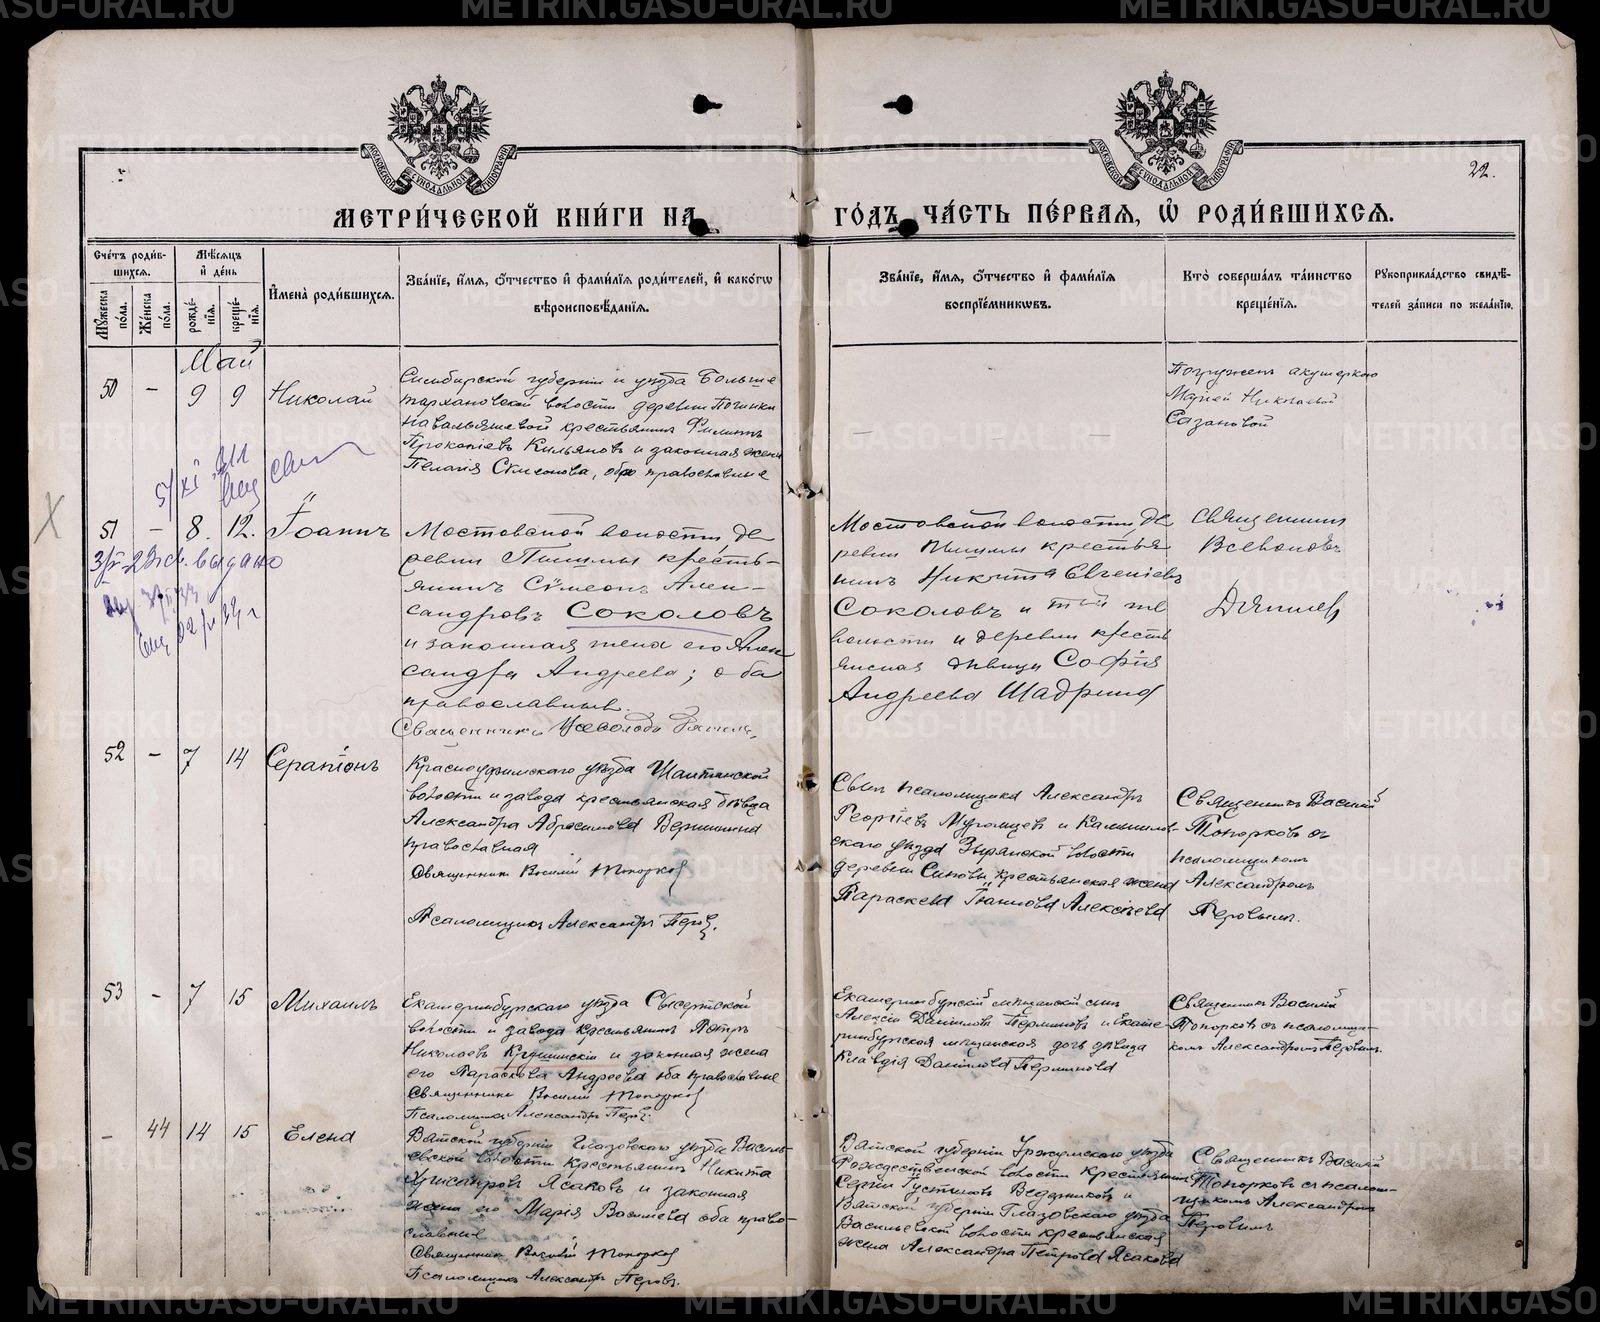 METRIKI.GASO-URAL.RU
МОСКОВСКОЙ СѴНОДАЛЬНОЙ ТИПОГРАФІИ
МОСКОВСКОЙ СѴНОДАЛЬНОЙ ТИПОГРАФІИ
22.
МЕТРИ́ЧЕСКОЙ КНИ́ГИ НА
ГО́ДЪ ЧА́СТЬ ПЕ́РВАЯ, Ѡ РОДИ́ВШИХСЯ.
Сче́тъ роди́в-
шихся.
Мѣ́сяцъ
и де́нь
Му́жеска по́ла.
Же́нска по́ла.
рожде́-
нія.
креще́-
нія.
И́мена̀ роди́вшихся.
Зва́ніе, и́мя, о́тчество и фами́лія роди́телей, и како́гѡ
вѣроисповѣ́данія.
Зва́ніе, и́мя, о́тчество и фами́лія
воспріе́мниковъ.
Кто̀ соверша́лъ та́инство
креще́нія.
Рꙋкоприкла́дство свидѣ́-
телей за́писи по жела́нію.
Май
50 — 9 9 Николай
Симбирской губерніи и уѣзда Больше
тархановской волости деревни Починки
крестьянинъ Филиппъ
Прокопіевъ Кильяновъ и законная жена
Пелагія Сѵмеонова, оба православные
— — —
Погруженъ акушеркою
Маріей Николаевой
Сазановой
51 — 8. 12. Іоаннъ
выдано
Мостовской волости де
ревни Пышмы кресть-
янинъ Сѵмеонъ Алек-
сандровъ Соколовъ
и законная жена его Алек
сандра Андреева; оба
православные.
Священникъ Всеволодъ
Мостовской волости де
ревни Пышмы крестья
нинъ Никита Евгеніевъ
Соколовъ и той же
волости и деревни кресть
янская дѣвица Софія
Андреева Шадрина
Священникъ
Всеволодъ
52 — 7 14 Серапіонъ
Красноуфимскаго уѣзда Шайтанской
волости и завода крестьянская дѣвица
Александра Абросимова Вершинина
православная
Священникъ Василій Топорковъ
Псаломщикъ Александръ Перовъ.
Сынъ псаломщика Александръ
Георгіевъ Мугомцевъ и Камышлов-
скаго уѣзда Зырянской волости
деревни крестьянская жена
Параскева Іоаннова Алексѣева
Священникъ Василій
Топорковъ съ
псаломщикомъ
Александромъ
Перовымъ.
53 — 7 15 Михаилъ
Екатеринбургскаго уѣзда Сысертской
волости и завода крестьянинъ Петръ
Николаевъ и законная жена
его Параскева Андреева оба православные
Священникъ Василій Топорковъ
Псаломщикъ Александръ Перовъ.
Екатеринбургскій мѣщанскій сынъ
Алексій Даніиловъ Перминовъ и Екате-
ринбургская мѣщанская дочь дѣвица
Клавдія Даніилова Перминова
Священникъ Василій
Топорковъ съ псаломщи-
комъ Александромъ Перовымъ.
— 44 14 15 Елена
Вятской губерніи Глазовскаго уѣзда Василь-
евской волости крестьянинъ Никита
Хрисанфовъ Ясаковъ и законная
жена его Марія Васильева оба право-
славные
Священникъ Василій Топорковъ
Псаломщикъ Александръ Перовъ.
Вятской губерніи Уржумскаго уѣзда
Рождественской волости крестьянинъ
Сергій Густиновъ Ведерниковъ и
Вятской губерніи Глазовскаго уѣзда
Васильевской волости крестьянская
жена Александра Петрова Ясакова
Священникъ Василій
Топорковъ съ псалом-
щикомъ Александромъ
Перовымъ